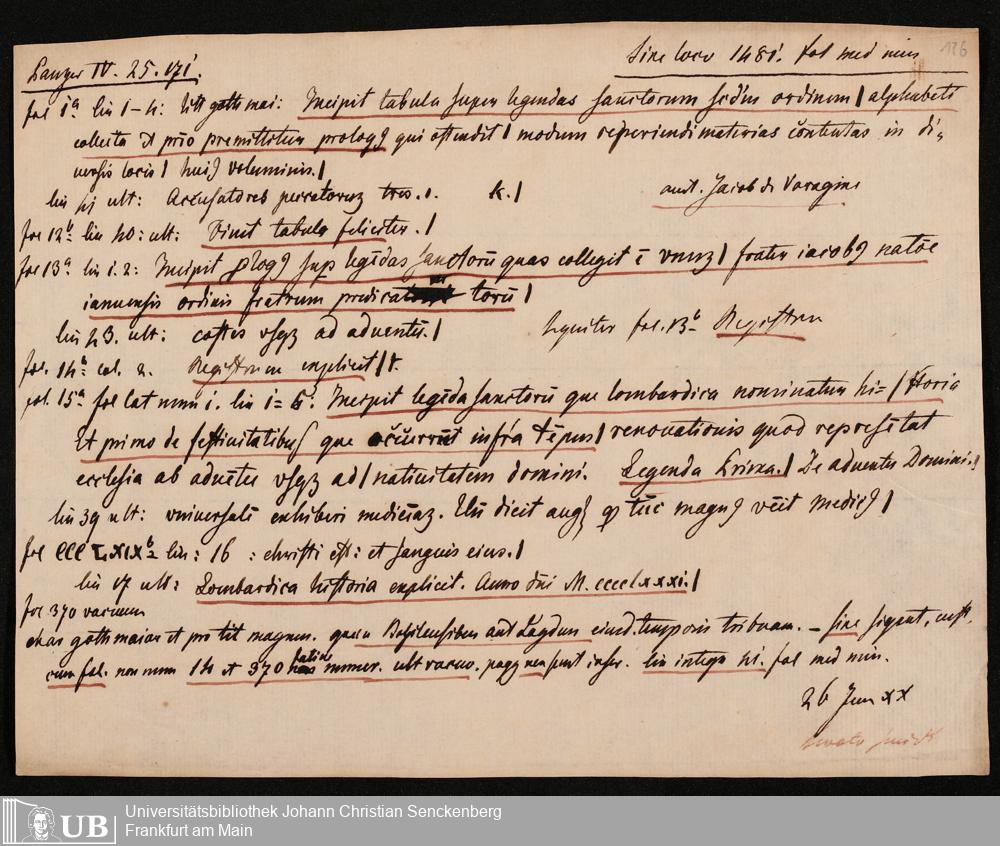 Panzer IV. 25. 171.
Sine loco 1481. fol med min
126
fol 1ª lin 1–4: litt goth mai: Incipit tabula super legendas sanctorum scd'm ordinem | alphabeti
collecta et prio premittetur prologꝯ qui ostendit | modum reperiendi materias cōtentas in di„
uersis locis | huiꝯ voluminis. |
lin ult: Accusatores peccatorum tres. 1. k. |
aut. Jacob de Voragine
fol 12ᵇ lin 40: ult: Finit tabula feliciter. |
fol 13ª lin 1. 2: Incipit plogꝯ sup legēdas sanctorū quas collegit ī vnuꝫ | frater iacobꝯ natōe
ianuensis ordinis fratrum predica torū |
lin 23. ult: costes vsqꝫ ad aduentū. | sequitur fol. 13ᵇ Registrum
fol. 14ᵇ col. 2. Registrum explicit |
fol. 15ª fol lat num 1. lin 1=6: Incipit legēda sanctorū que lombardica nominatur hi= | storia
Et primo de festiuitatibus que occurrūt infra tēpus | renouationis quod represētat
ecclesia ab aduētu vsqꝫ ad | natiuitatem domini. Legenda Prima. | De aduentu Domini. |
lin 39 ult: vniuersalē exhiberi medicinaꝫ. Uñ dicit augꝯ ꝙ tūc magnꝯ vēit medicꝯ |
fol CCCLXIXᵇ lin: 16 : christi est: et sanguis eius. |
lin 17 ult: Lombardica historia explicit. Anno dñi M. cccclxxxi. |
fol 370 vacuum
char goth maior et pro tit magnus. quem Basileensibus aut Lugdun eiusd. temporis tribuam. – sine signat, cust,
cum fol. non num 14 et 370 latin numer. ult vacuo. pagg non sunt inscr. lin integr 41. fol med min.
26 Jun xx